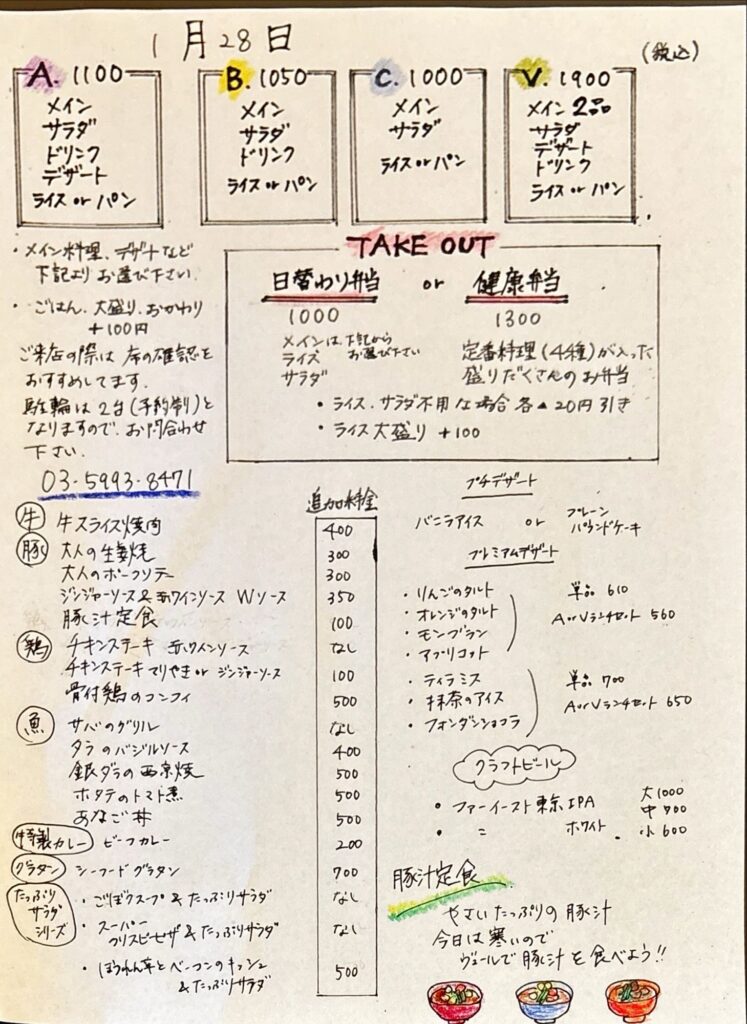 1月28日
(税込)
A. 1100
メイン
サラダ
ドリンク
デザート
ライス or パン
B. 1050
メイン
サラダ
ドリンク
ライス or パン
C. 1000
メイン
サラダ
ライス or パン
V. 1900
メイン 2品
サラダ
デザート
ドリンク
ライス or パン
・メイン料理、デザートなど
下記よりお選び下さい
・ごはん、大盛り、おかわり
+100円
ご来店の際は席の確認を
おすすめしてます。
駐輪は2台(予約制)と
なりますので、お問合わせ
下さい。
03-5993-8471
TAKE OUT
日替わり弁当 or 健康弁当
1000
メインは下記から
お選び下さい
ライス
サラダ
1300
定番料理(4種)が入った
盛りだくさんのお弁当
・ライス、サラダ不用な場合各▲20円引き
・ライス大盛り +100
追加料金
牛 牛スライス焼肉 400
豚 大人の生姜焼 300
大人のポークソテー 300
ジンジャーソース&赤ワインソース Wソース 350
豚汁定食 100
鶏 チキンステーキ 赤ワインソース なし
チキンステーキ てりやき or ジンジャーソース 100
骨付鶏のコンフィ 500
魚 サバのグリル なし
タラのバジルソース 400
銀ダラの西京焼 500
ホタテのトマト煮 500
あなご丼 500
特製カレー ビーフカレー 200
グラタン シーフードグラタン 700
たっぷり
サラダ
シリーズ
・ごぼうスープ&たっぷりサラダ なし
・スーパー
クリスピーピザ&たっぷりサラダ なし
・ほうれん草とベーコンのキッシュ
&たっぷりサラダ 500
プチデザート
バニラアイス or プレーン
パウンドケーキ
プレミアムデザート
・りんごのタルト
・オレンジのタルト
・モンブラン
・アプリコット
単品 610
A or Vランチセット 560
・ティラミス
・抹茶のアイス
・フォンダンショコラ
単品 700
A or Vランチセット 650
クラフトビール
・ファーイースト東京IPA
・ 〃 ホワイト
大1000
中900
小600
豚汁定食
やさいたっぷりの豚汁
今日は寒いので
ヴェールで豚汁を食べよう!!